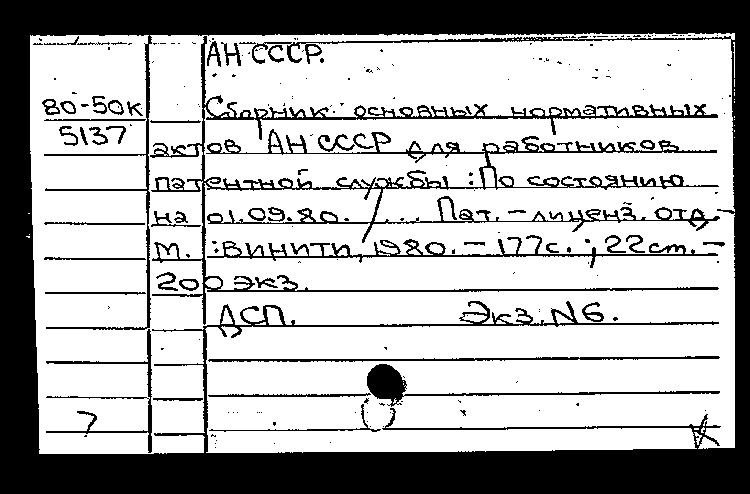 АН СССР.
80-50к Сборник основных нормативных
5137 актов АН СССР для работников
патентной службы : По состоянию
на 01.09.80. / ... Пат. - лиценз. отд. -
М. : ВИНИТИ, 1980. - 177с. ; 22см. -
200 экз.
ДСП. Экз. N6.
7
К